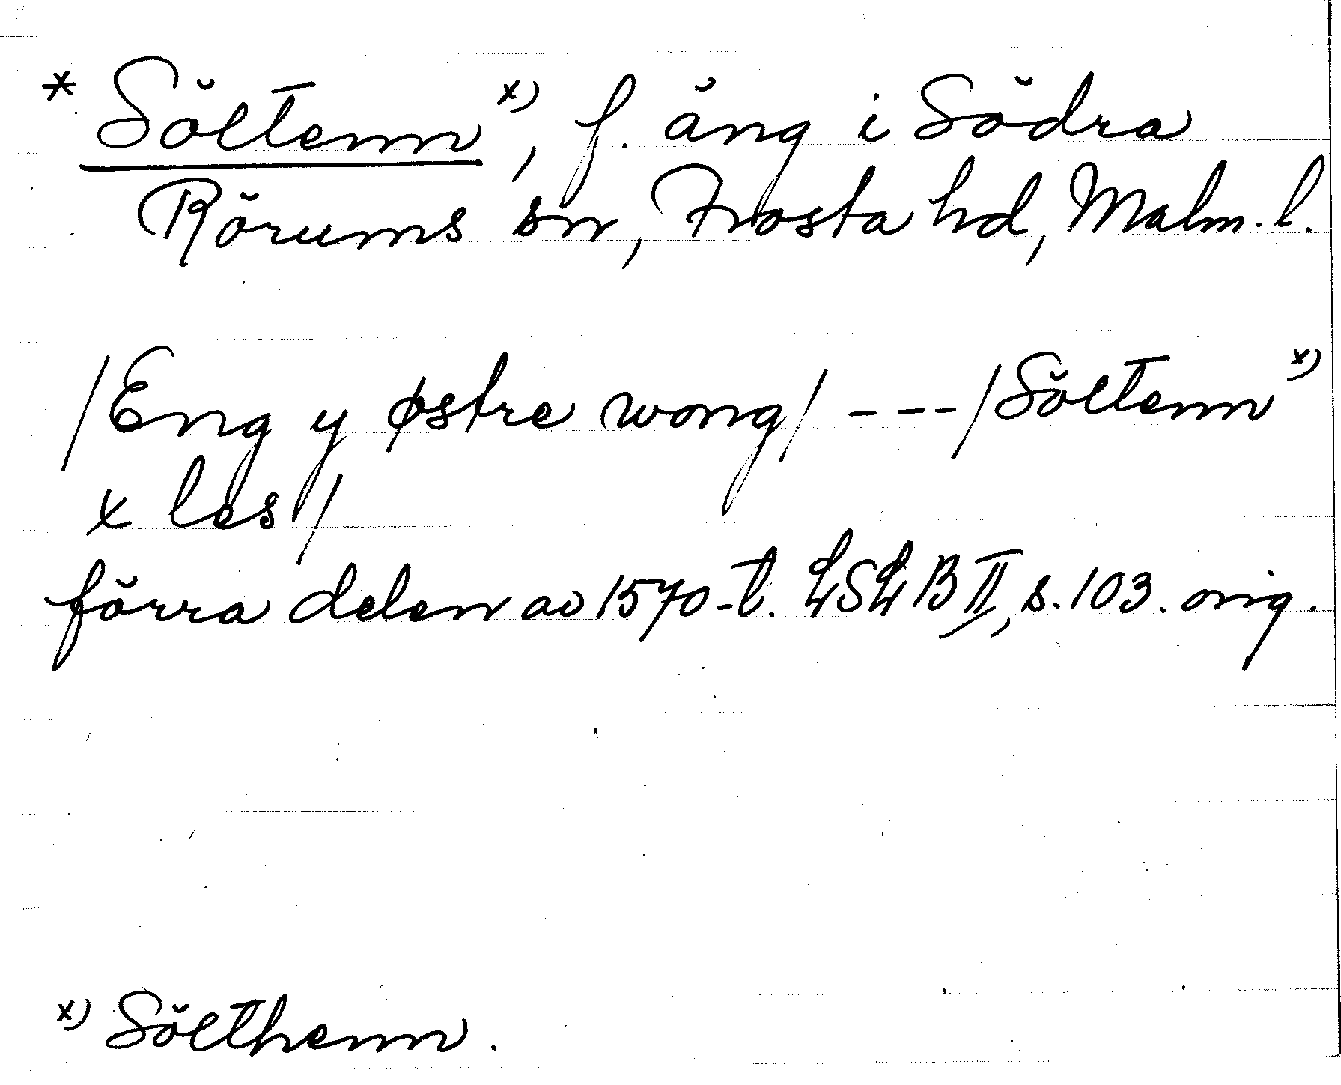 * Söltenn x), f. äng i Södra
Rörums sn, Frosta hd, Malm. l.
/Eng y østre wong/ - - - /Söltenn x)
x les/
förra delen av 1570-t. LSLB II, s. 103. orig.
x) Sölthenn.